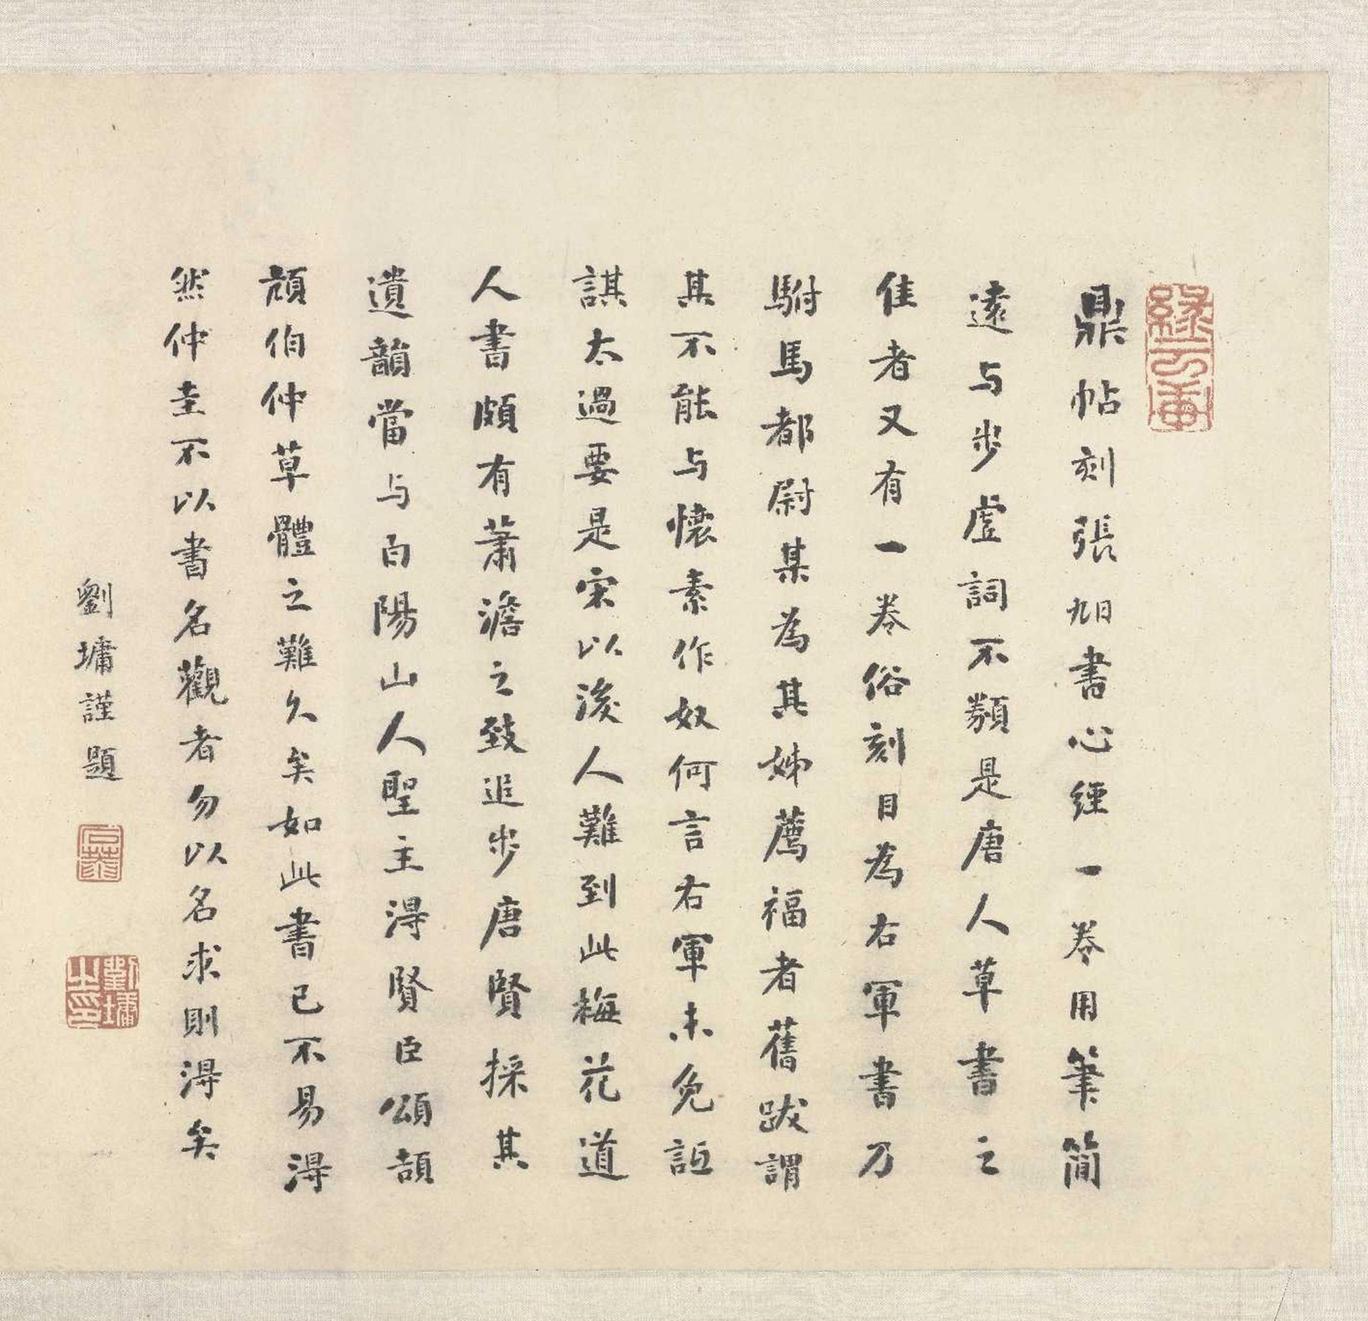 鼎帖刻張旭書心經一卷用筆簡
遠与步虛詞不類是唐人草書之
佳者又有一卷俗刻目為右軍書乃
駙馬都尉某為其姊薦福者舊跋謂
其不能与懷素作奴何言右軍未免詆
諆太過要是宋以後人難到此梅花道
人書頗有蕭澹之致追步唐賢採其
遺韻當与白陽山人聖主得賢臣頌頡
頏伯仲草體之難久矣如此書已不易得
然仲圭不以書名觀者勿以名求則得矣
劉墉謹題
劉墉之印